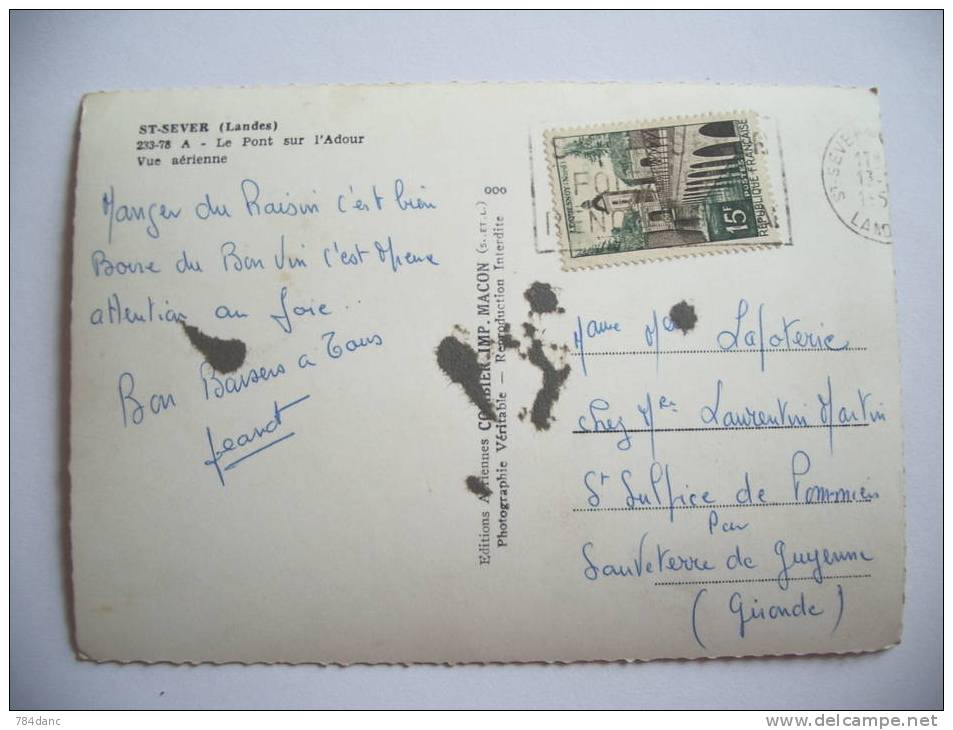 ST-SEVER (Landes)
233-78 A - Le Pont sur l'Adour
Vue aérienne
Manger du Raisin c'est bien
Boire du Bon Vin c'est Mieux
attention au foie...
Bon Baisers a Tous
Jeanot
ooo
Editions Aériennes COMBIER IMP. MACON (S.-ET-L.)
Photographie Véritable — Reproduction Interdite
LE QUESNOY (Nord)
15F
POSTES
REPUBLIQUE FRANÇAISE
ST-SEVER
LAND
Mame Mer Lafoterie
chez Mr Laurentin Martin
St Sulpice de Pommiers
Par
Sauveterre de Guyenne
(Gironde)
784danc
www.delcampe.net